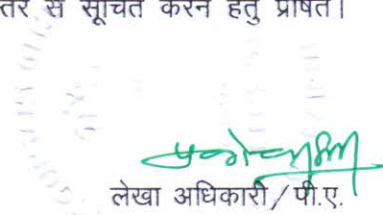 तर से सूचित करने हेतु प्रेषित।
लेखा अधिकारी/पी.ए.